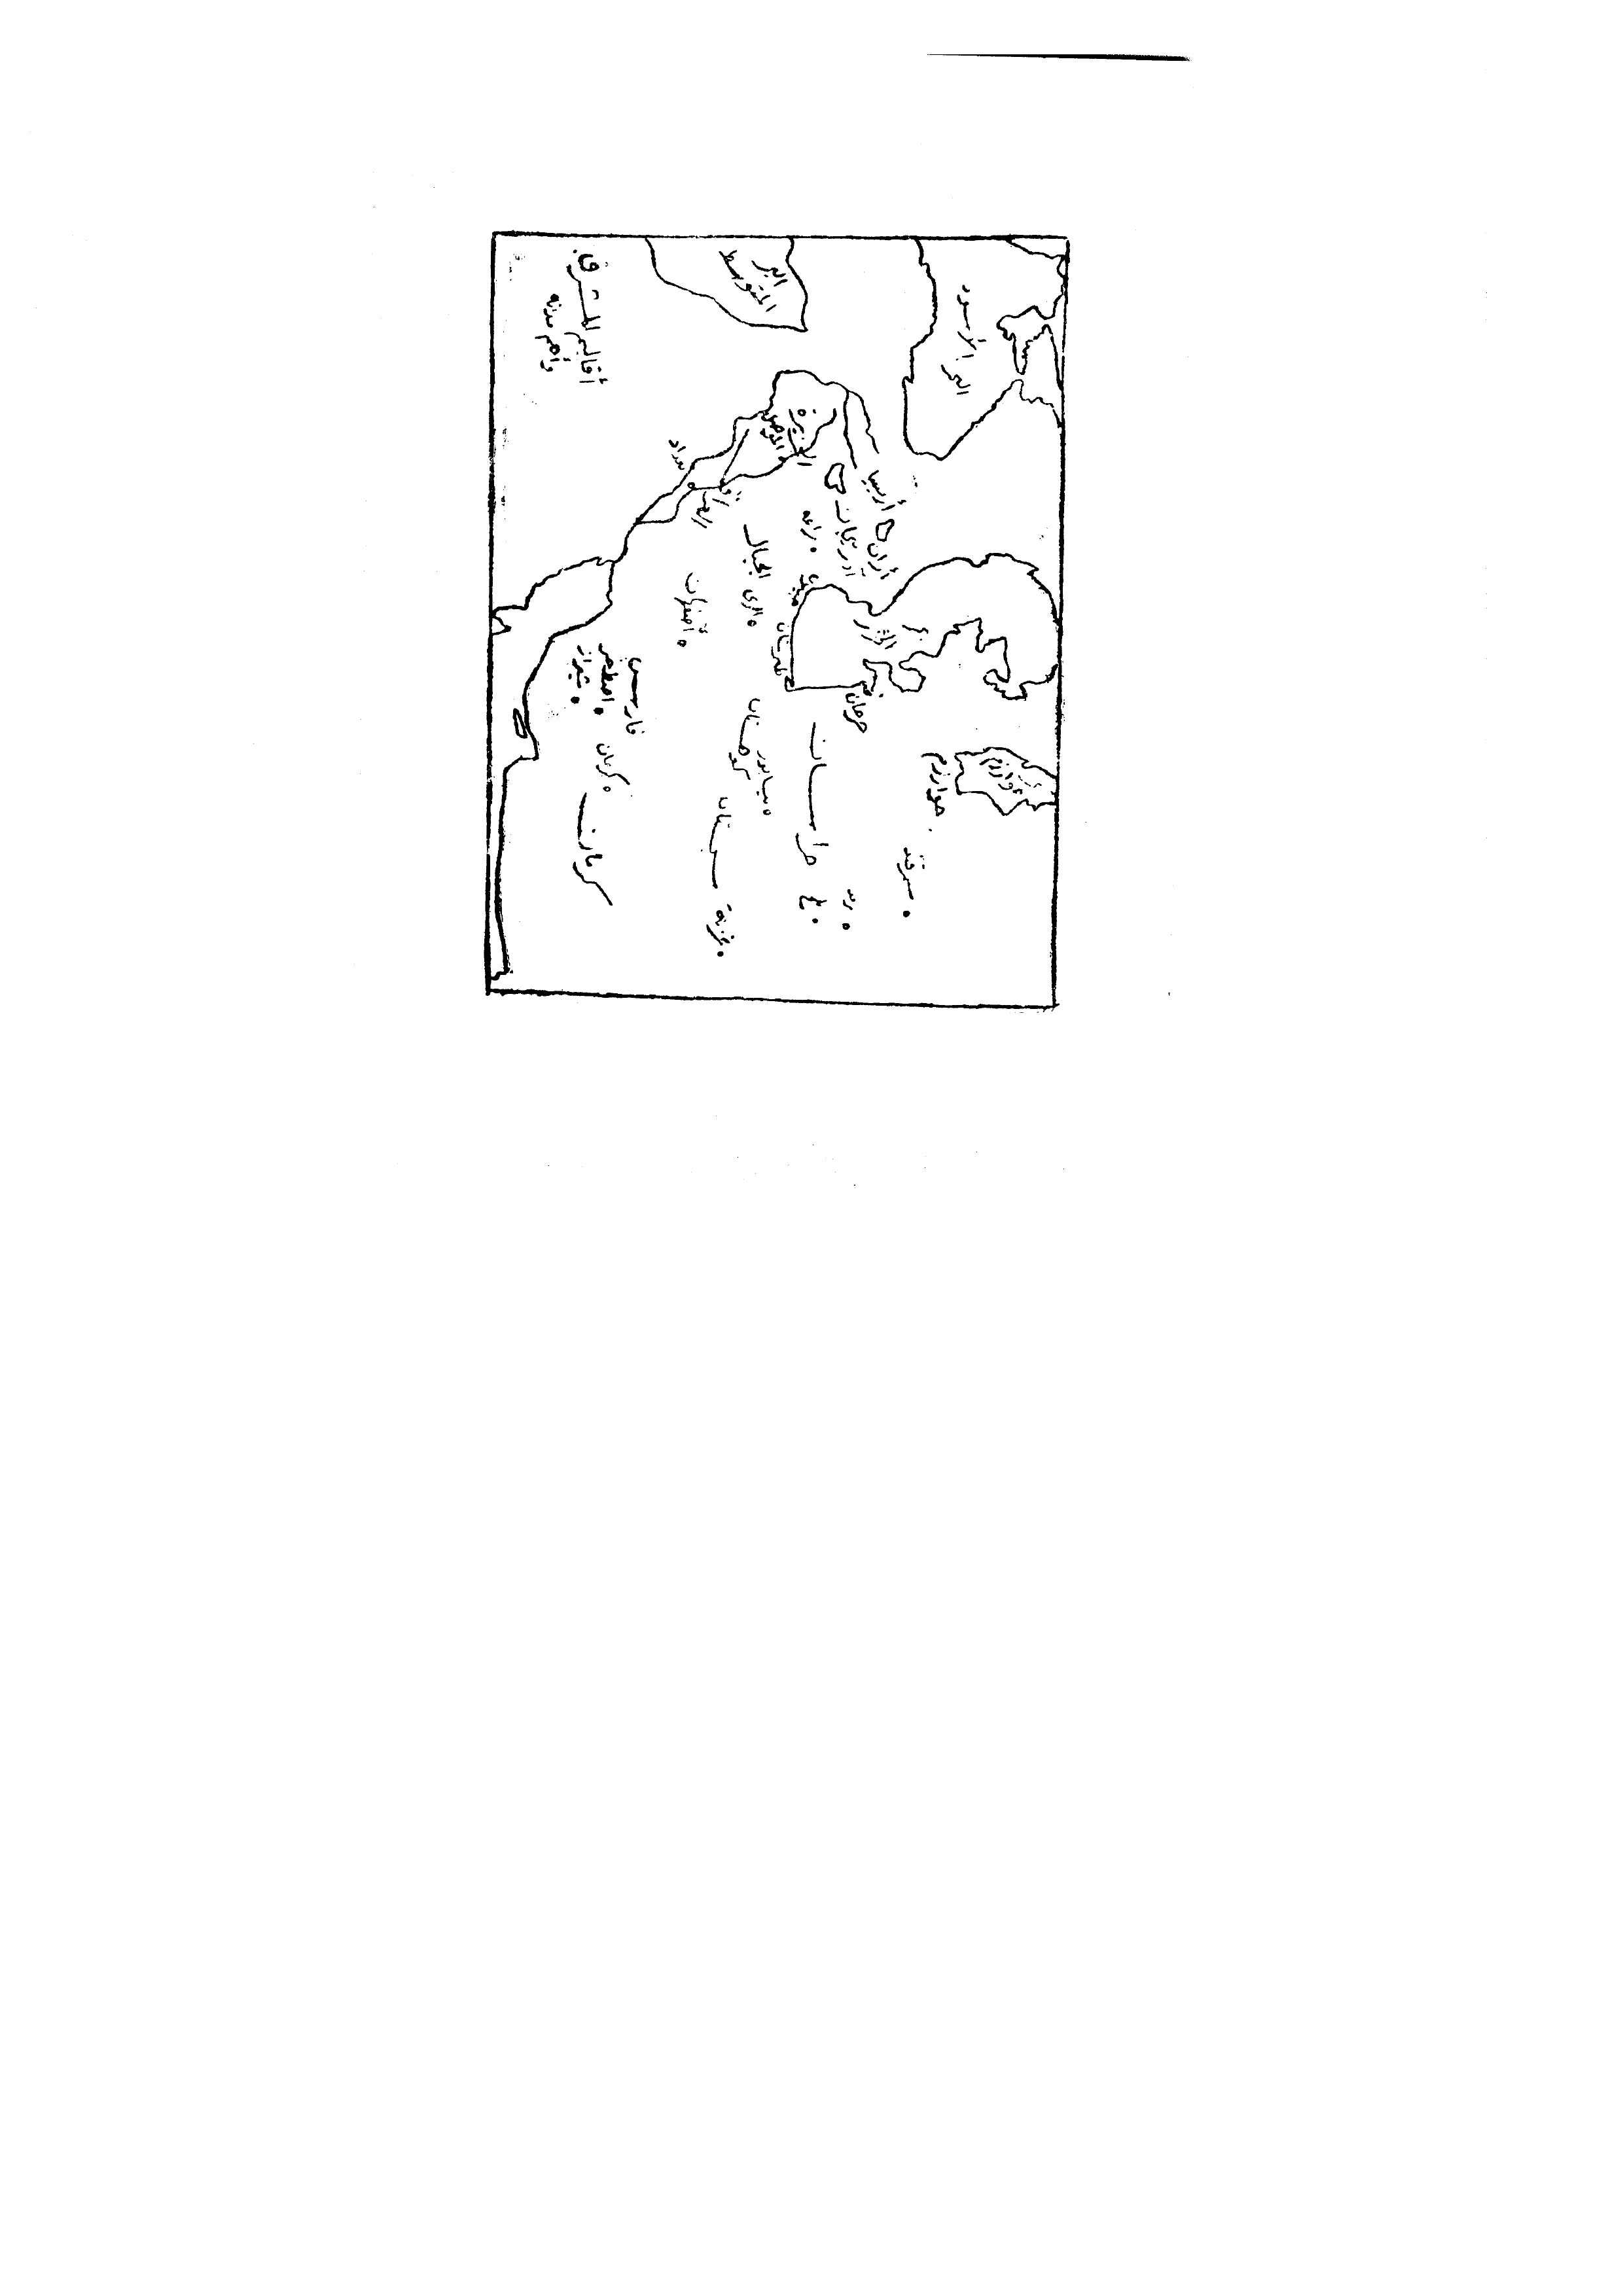 أقاليم المشرق
وأهم مدنه
البحر الأسود
البحر
المتوسط
أرمينيا
أران
أذربيجان
مراغة
الجزيرة
الموصل
العراق
بغداد
الجبال
الري
أصفهان
بحر
الخزر
طبرستان
جرجان
خوارزم
بحر
خوارزم
سمرقند
بلخ
خراسان
نيسابور
قوهستان
سجستان
غزنة
فارس
اصطخر
شيراز
كرمان